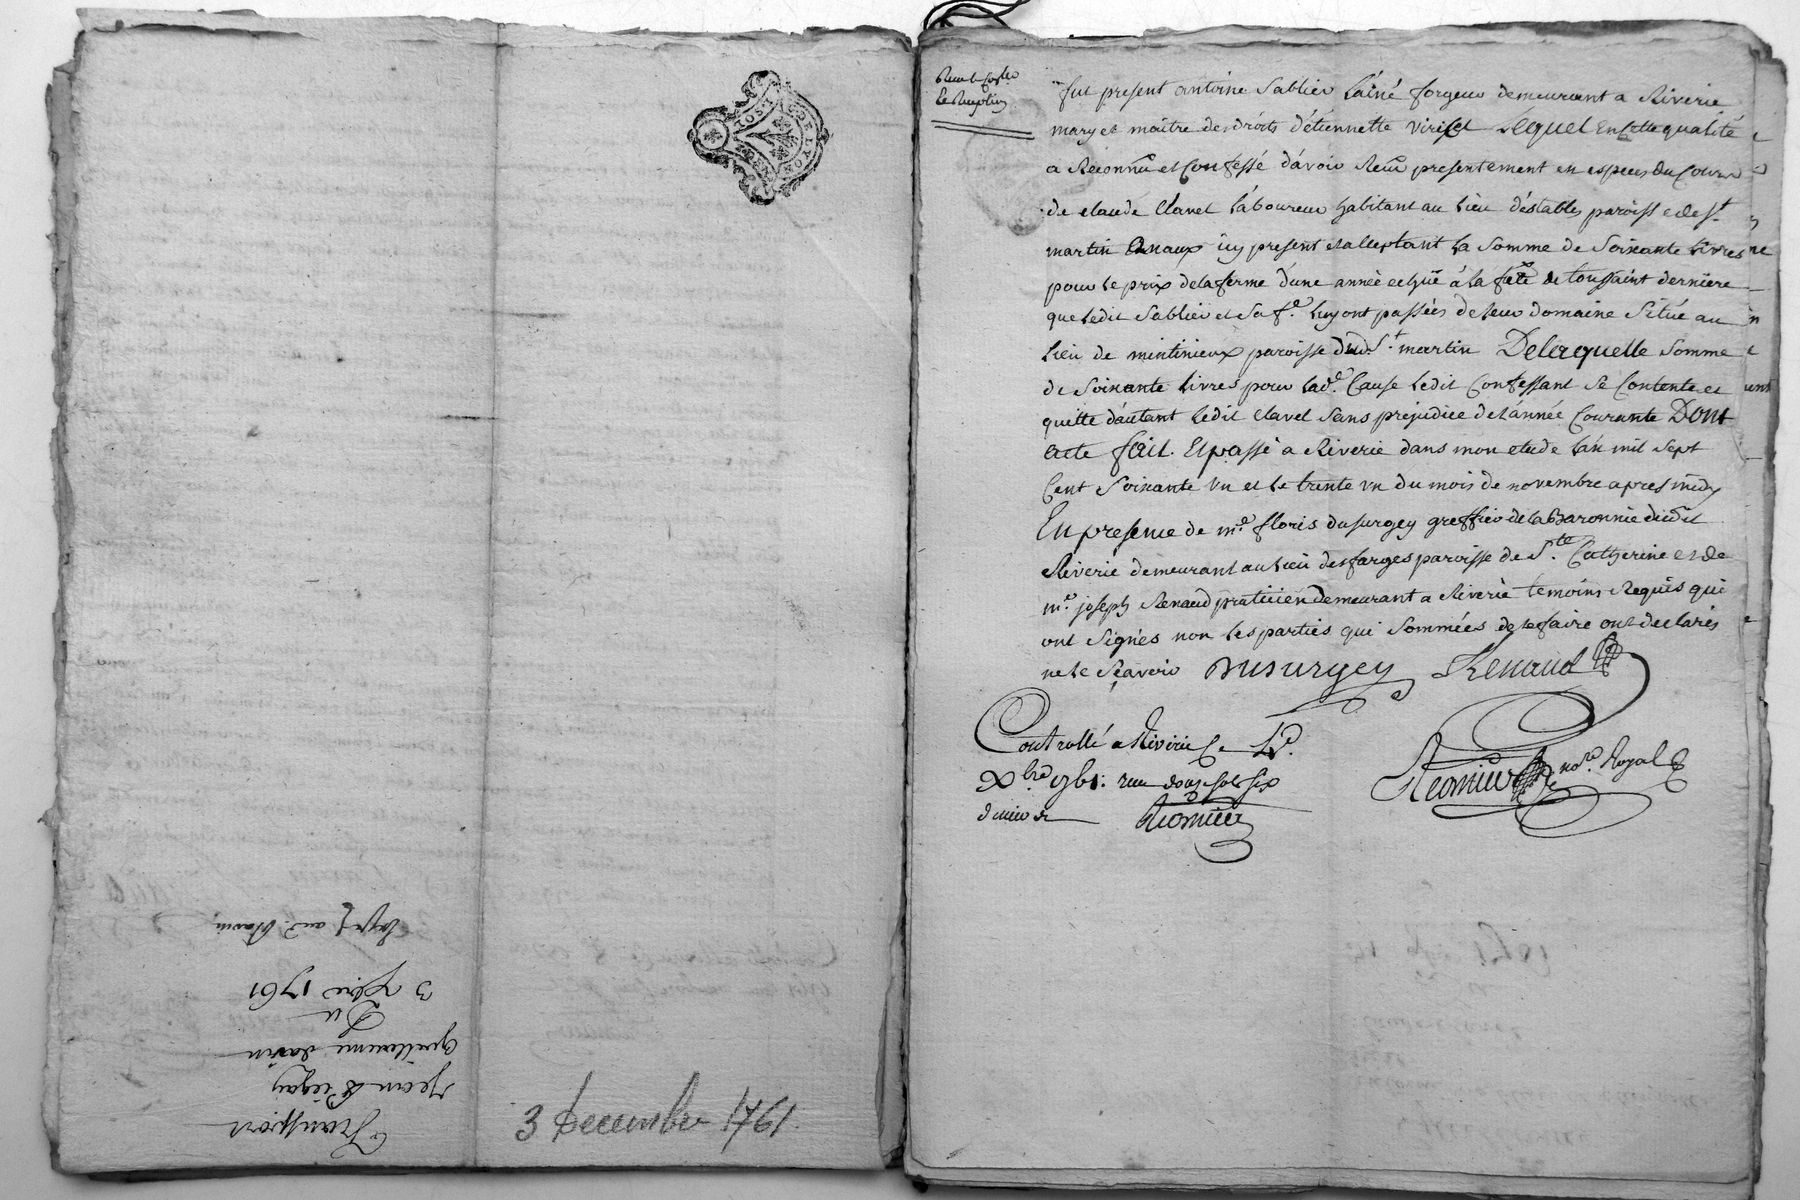 GEN. DE LYON
Transport
jean Piégay
guilleaume davin
Du
3 Xbre 1761
3 Decembre 1761.
fut present antoine Sablier L'aîné forgeur demeurant a Riverie
mary et maître des droits d'étiennette viricel Lequel En Cette qualité
a Reconnu et Confessé d'avoir Reçu presentement en especes du Cours
de claude Clavel Laboureur habitant au Lieu d'éstables paroisse de St
martin Annaux icy present et acceptant La Somme de Soixante Livres
pour Le prix de la ferme d'une année echüe á la fête de toussaint derniere
que Ledit Sablier et Sa fe. Luy ont passées de leur domaine Situé au
Lieu de mintinieux paroisse dud. St martin Delaquelle Somme
de Soixante Livres pour Lade. Cause Ledit Confessant Se Contente et
quitte d'autant Ledit clavel Sans prejudice de L'année Courante Dont
acte fait. Et passé a Riverie dans mon etude L'an mil Sept
Cent Soixante Un et Le trente un du mois de novembre apres midy
En presence de me. floris dusurgey greffier de la Baronnie dudit
Riverie demeurant au Lieu des farges paroisse de Ste. Catherine et de
me. joseph Renaud praticien demeurant a Riverie temoins Requis qui
ont Signés non Les parties qui Sommées de le faire ont declarés
ne le Sçavoir Dusurgey Renaud
Controllé a Riverie Le
Xbre 1761: reçu douze sols six
deniers